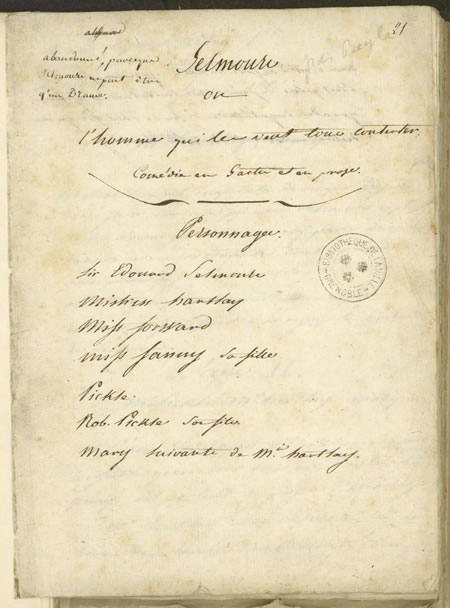 21
abandonné, parceque
Selmoure ne peut être
qu'un Drame.
Selmoure
ou
l'homme qui les veut tous contenter.
Comédie en 5 actes et en prose.
Personnages
Sir Edouard Selmoure
Mistriss hartlay
Miss forward
miss fanny sa fille
Pickle.
Rob. Pickle son fils
Mary suivante de M.è hartlay.
BIBLIOTHÈQUE DE LA VILLE
GRENOBLE